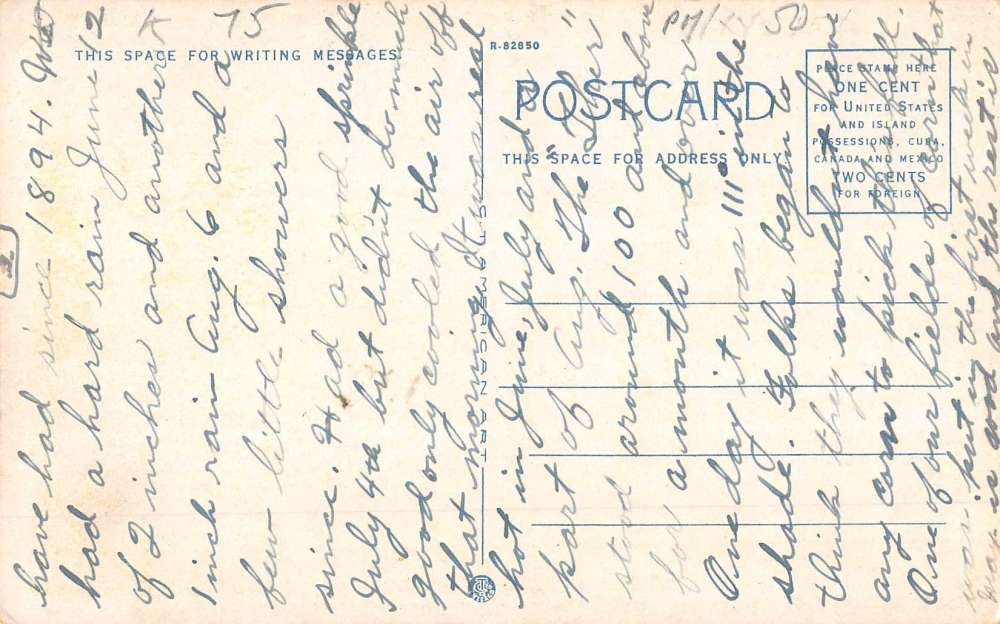 2
have had since 1894. We
had a hard rain June 12
of 2 inches and another
1 inch rain Aug. 6 and a
few little showers
since. Had a good sprinkle
July 4th but didn't do much
good only cooled the air off
that morning. It was real
hot in June, July and a
part of Aug. The "Ther"
stood around 100 and above
for a month and over
One day it was 111° in the
shade. Folks began to
think they wouldn't have
any corn to pick this fall.
One of our fields of corn that
was put in the first week in
May is good and the rest is
75
50
THIS SPACE FOR WRITING MESSAGES
R-82850
POSTCARD
THIS SPACE FOR ADDRESS ONLY
PLACE STAMP HERE
ONE CENT
FOR UNITED STATES
AND ISLAND
POSSESSIONS, CUBA,
CANADA AND MEXICO
TWO CENTS
FOR FOREIGN
AMERICAN ART